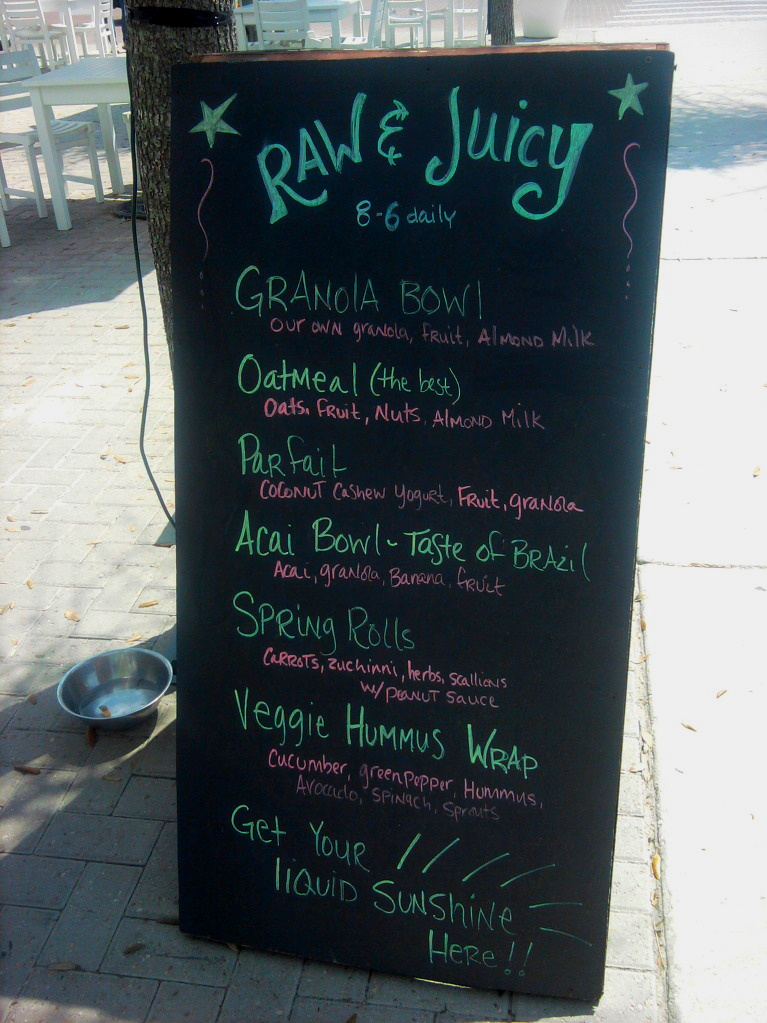 RAW & Juicy
8-6 daily
GRANOLA BOWl
OUR OWN granola, fruit, Almond Milk
Oatmeal (the best)
Oats, Fruit, Nuts, Almond Milk
Parfait
COCONUT Cashew Yogurt, Fruit, granola
Acai Bowl - Taste of BRAzil
Acai, granola, Banana, fruit
SPRing Rolls
CARROTS, zuchinni, herbs, scallions
w/ PEANUT SAUCE
Veggie Hummus WRAP
Cucumber, greenpepper, Hummus,
Avocado, SPINACH, Sprouts
Get Your
liQUID SUNShine
Here!!